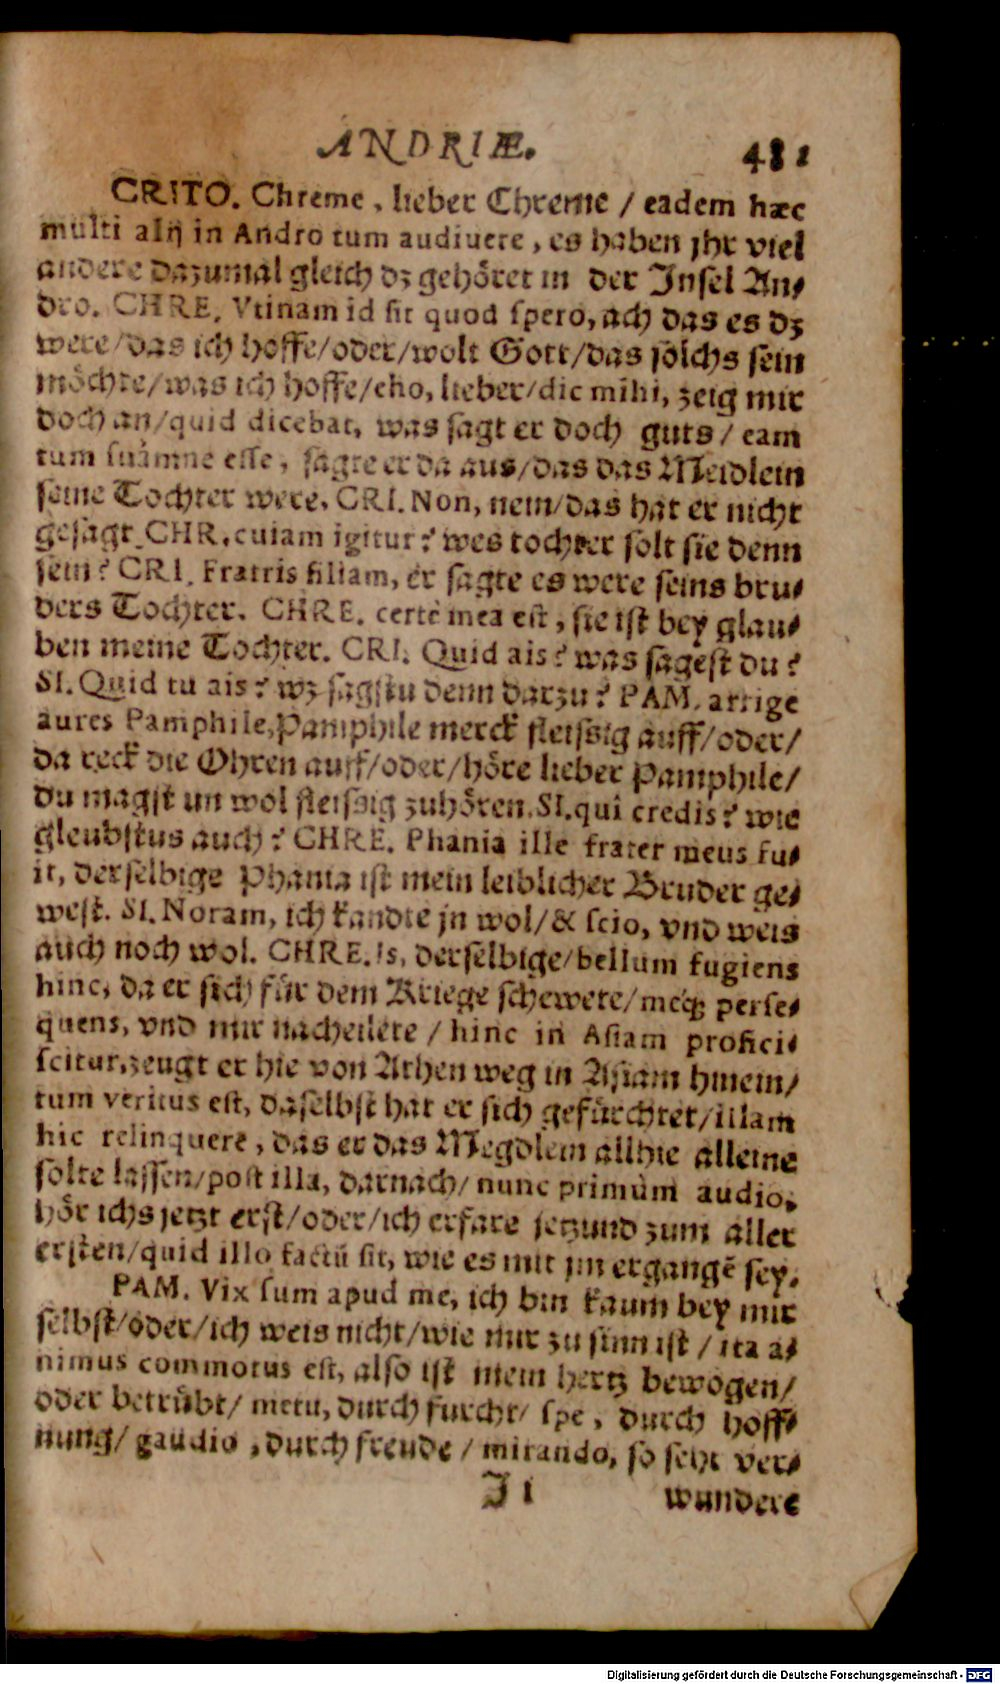 ANDRIÆ. 481
CRITO. Chreme, lieber Chreme / eadem hæc
multi alij in Andro tum audiuere, es haben jhr viel
andere dazumal gleich dz gehöret in der Insel An⸗
dro. CHRE. Vtinam id sit quod spero, ach das es dz
were/das ich hoffe/oder/wolt Gott/das solchs sein
möchte/was ich hoffe/eho, lieber/dic mihi, zeig mir
doch an/quid dicebat, was sagt er doch guts / eam
tum suámne esse, sagte er da aus/das das Meidlein
seine Tochter were. CRI. Non, nein/das hat er nicht
gesagt. CHR. cuiam igitur? wes tochter solt sie denn
sein? CRI. Fratris filiam, er sagte es were seins bru⸗
ders Tochter. CHRE. certè mea est, sie ist bey glau⸗
ben meine Tochter. CRI. Quid ais? was sagest du?
SI. Quid tu ais? wz sagstu denn darzu? PAM. arrige
aures Pamphile, Pamphile merck fleissig auff/oder/
da reck die Ohren auff/oder/höre lieber Pamphile/
du magst nu wol fleissig zuhören. SI. quî credis? wie
gleubstus auch? CHRE. Phania ille frater meus fu⸗
it, derselbige Phania ist mein leiblicher Bruder ge⸗
west. SI. Noram, ich kandte jn wol/& scio, vnd weis
auch noch wol. CHRE. Is, derselbige/bellum fugiens
hinc, da er sich für dem Kriege schewete/meq́; perse⸗
quens, vnd mir nacheilete / hinc in Asiam profici⸗
scitur, zeugt er hie von Athen weg in Asiam hinein/
tum veritus est, daselbst hat er sich gefürchtet/illam
hic relinquere, das er das Megdlein allhie alleine
solte lassen/post illa, darnach/ nunc primùm audio,
hör ichs jetzt erst/oder/ich erfare jetzund zum aller
ersten/quid illo factū sit, wie es mit jm ergangē sey.
PAM. Vix sum apud me, ich bin kaum bey mir
selbst/oder/ich weis nicht/wie mir zu sinn ist / ita a⸗
nimus commotus est, also ist mein hertz bewogen/
oder betrübt/ metu, durch furcht/ spe, durch hoff⸗
nung/ gaudio, durch freude / mirando, so sehr ver⸗
Ii wundere
Digitalisierung gefördert durch die Deutsche Forschungsgemeinschaft - DFG